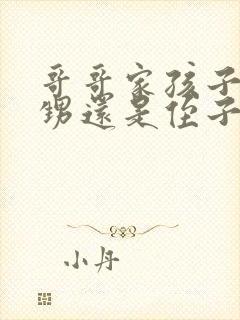 哥哥家孩子
甥還是侄子
小丹